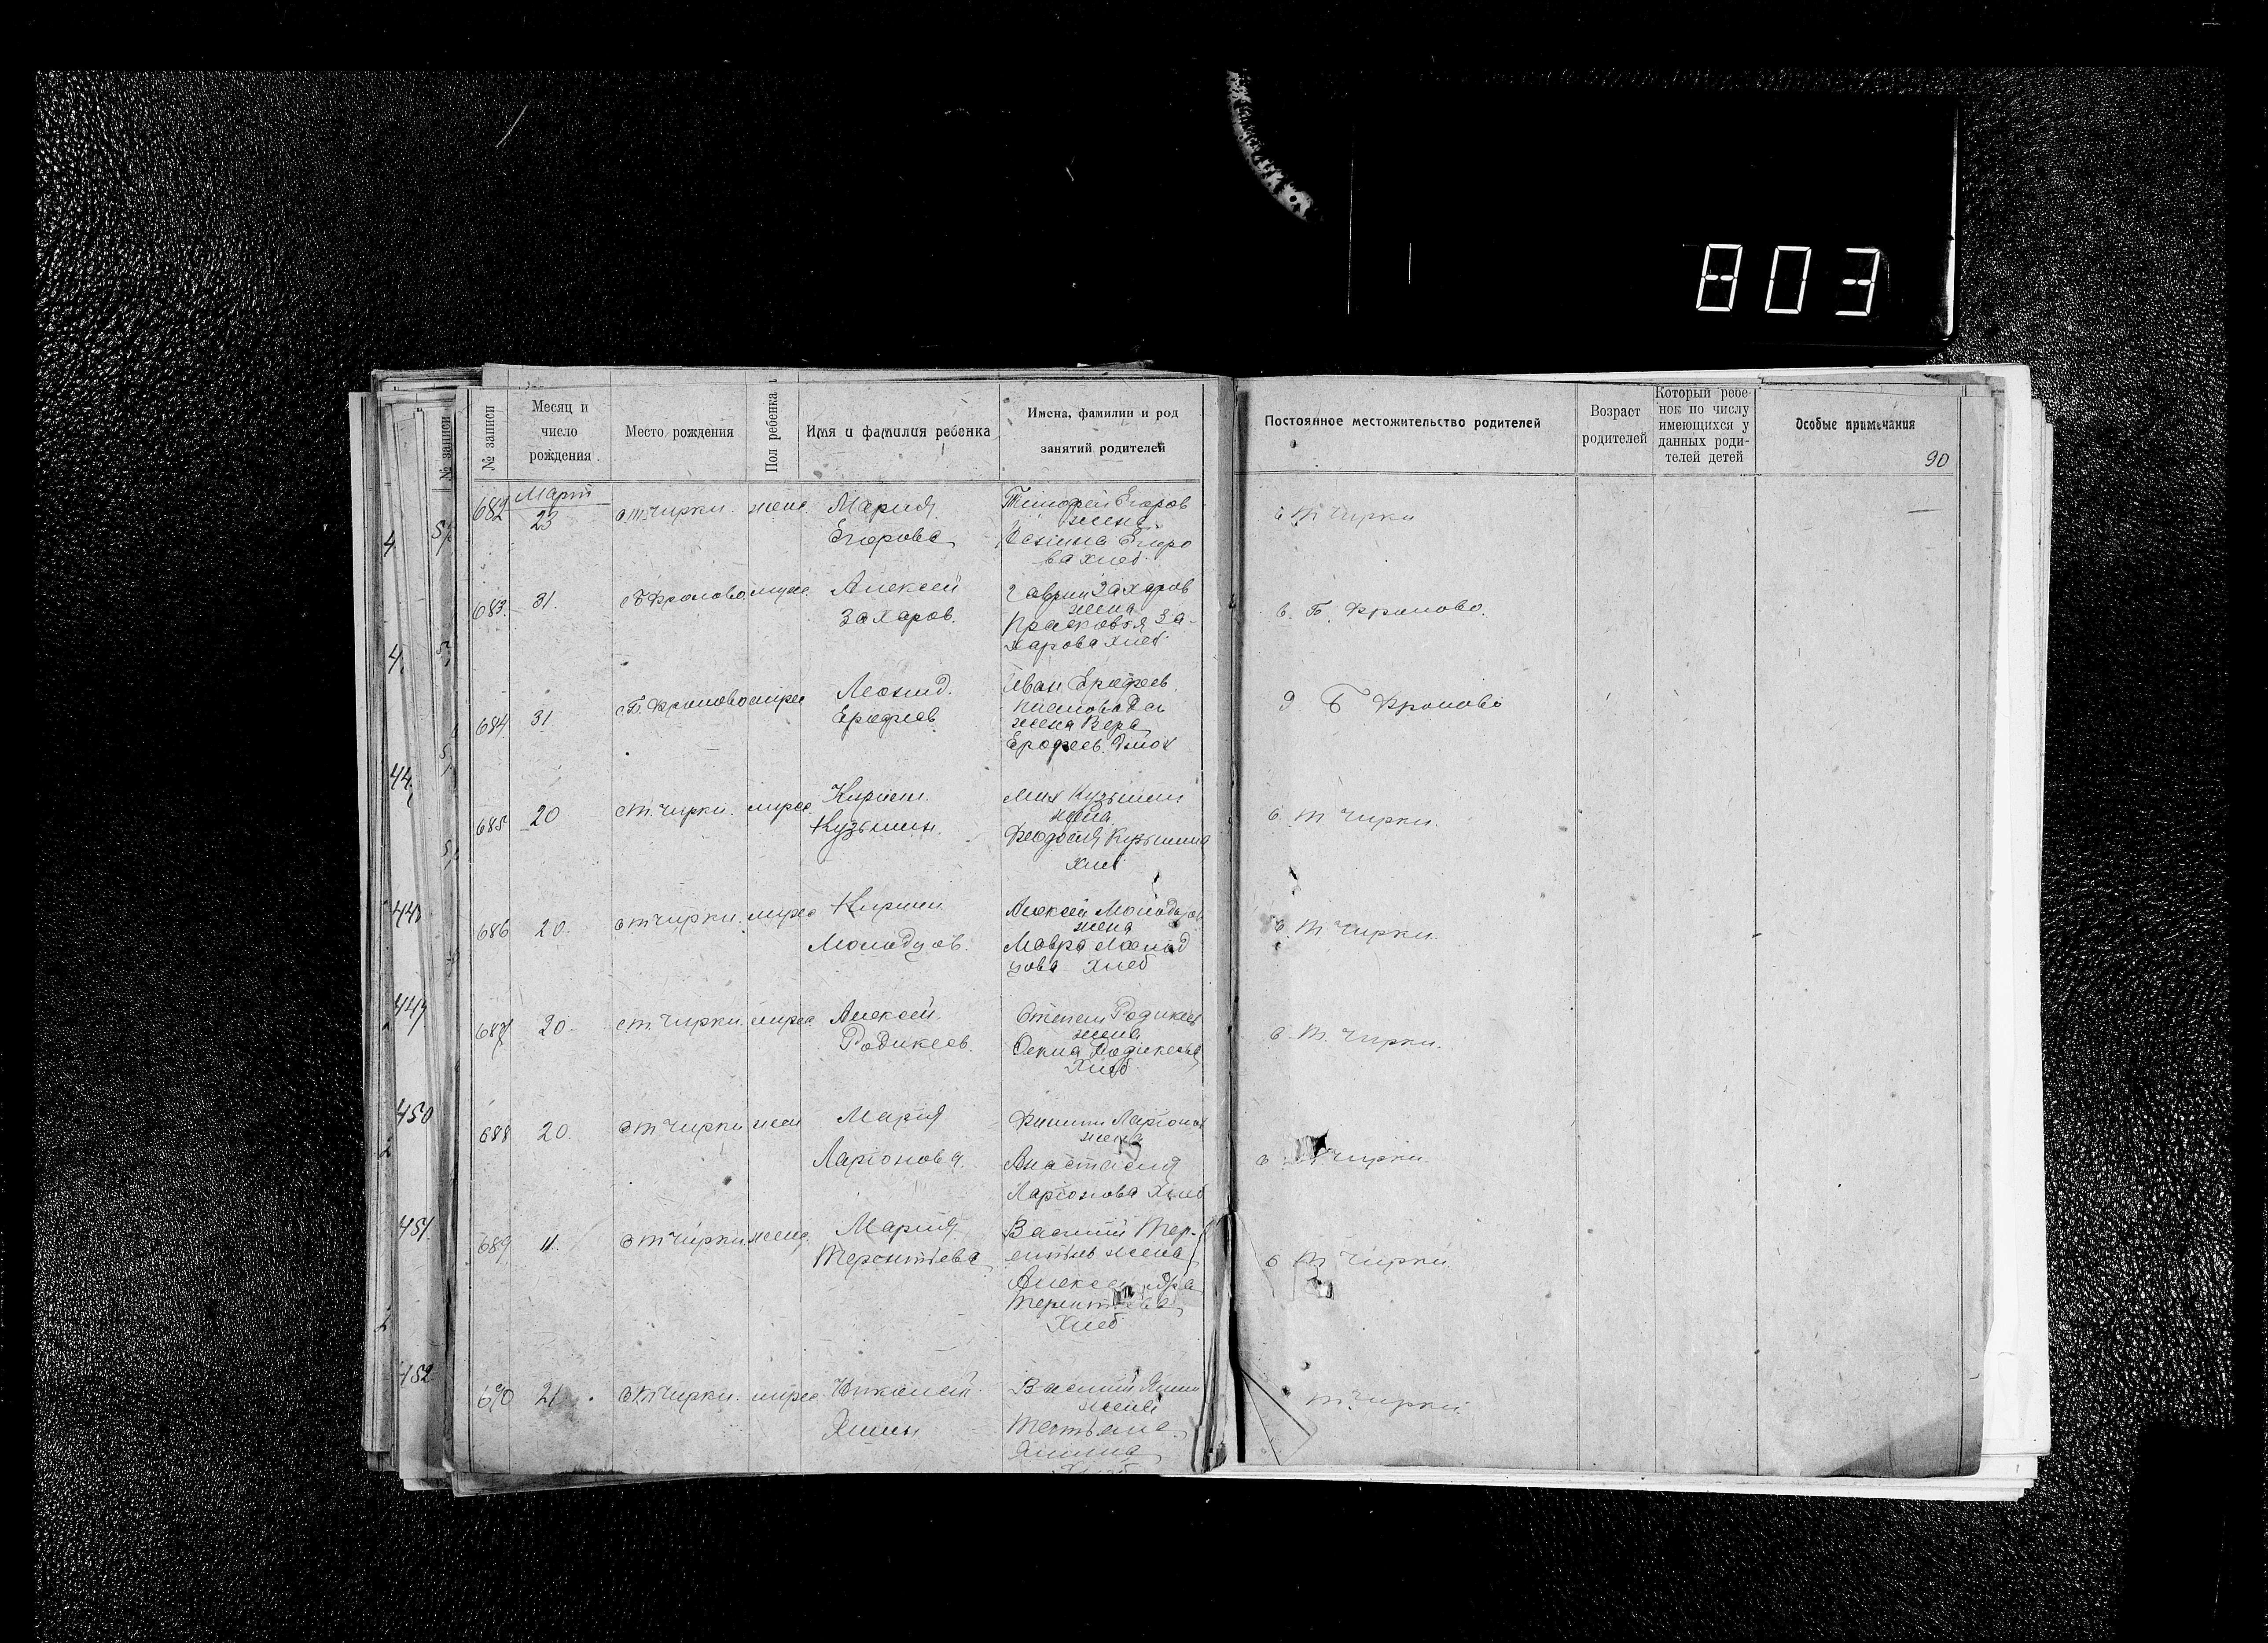 803
№ записи
Месяц и
число
рождения
Место рождения
Пол ребенка
Имя и фамилия ребенка
Имена, фамилии и род
занятий родителей
Постоянное местожительство родителей
Возраст
родителей
Который ребе-
нок по числу
имеющихся у
данных роди-
телей детей
Особые примечания
90
№ записи
682 Март
23
с Т Чирки жен Мария
Егорова
Тимофей Егоров
жена
Егоро
ва хлеб
с Т Чирки
683 31. с Б Фролово муж. Алексей
Захаров.
Гаврил Захаров
жена
Прасковья За-
харова хлеб
с. Б. Фролово.
684 31 с Б. Фролово муж Леонид.
Ерофеев
Иван Ерофеев
жена Вера
Ерофеев.
Б Фролово
685 20 с Т. Чирки. муж Кирилл.
Кузьмин.
Мих Кузьмин
жена
Феодосия Кузьмина
хлеб
с. Т Чирки.
686 20. с Т Чирки. муж Кирилл
Молодцов.
Алексей Молодцов
жена
Мавра Молод
цова Хлеб
с. Т Чирки.
687 20 с Т. Чирки. муж Алексей
Родикеев.
Степан Родикеев
жена
Родикеева
Хлеб
с. Т. Чирки.
688 20. с Т Чирки жен Мария
Ларионова.
Филипп Ларионов
жена
Анастасия
Ларионова Хлеб
с Т Чирки.
689 11. с Т Чирки жен. Мария
Терентьева
Василий Тер-
ентьев жена
Александра
Терентьева
Хлеб
с Т Чирки
690 21 с Т Чирки. муж Николай
Яшин
Василий Яшин
жена
Татьяна
Яшина
Т. Чирки.
44
449
450
451
452